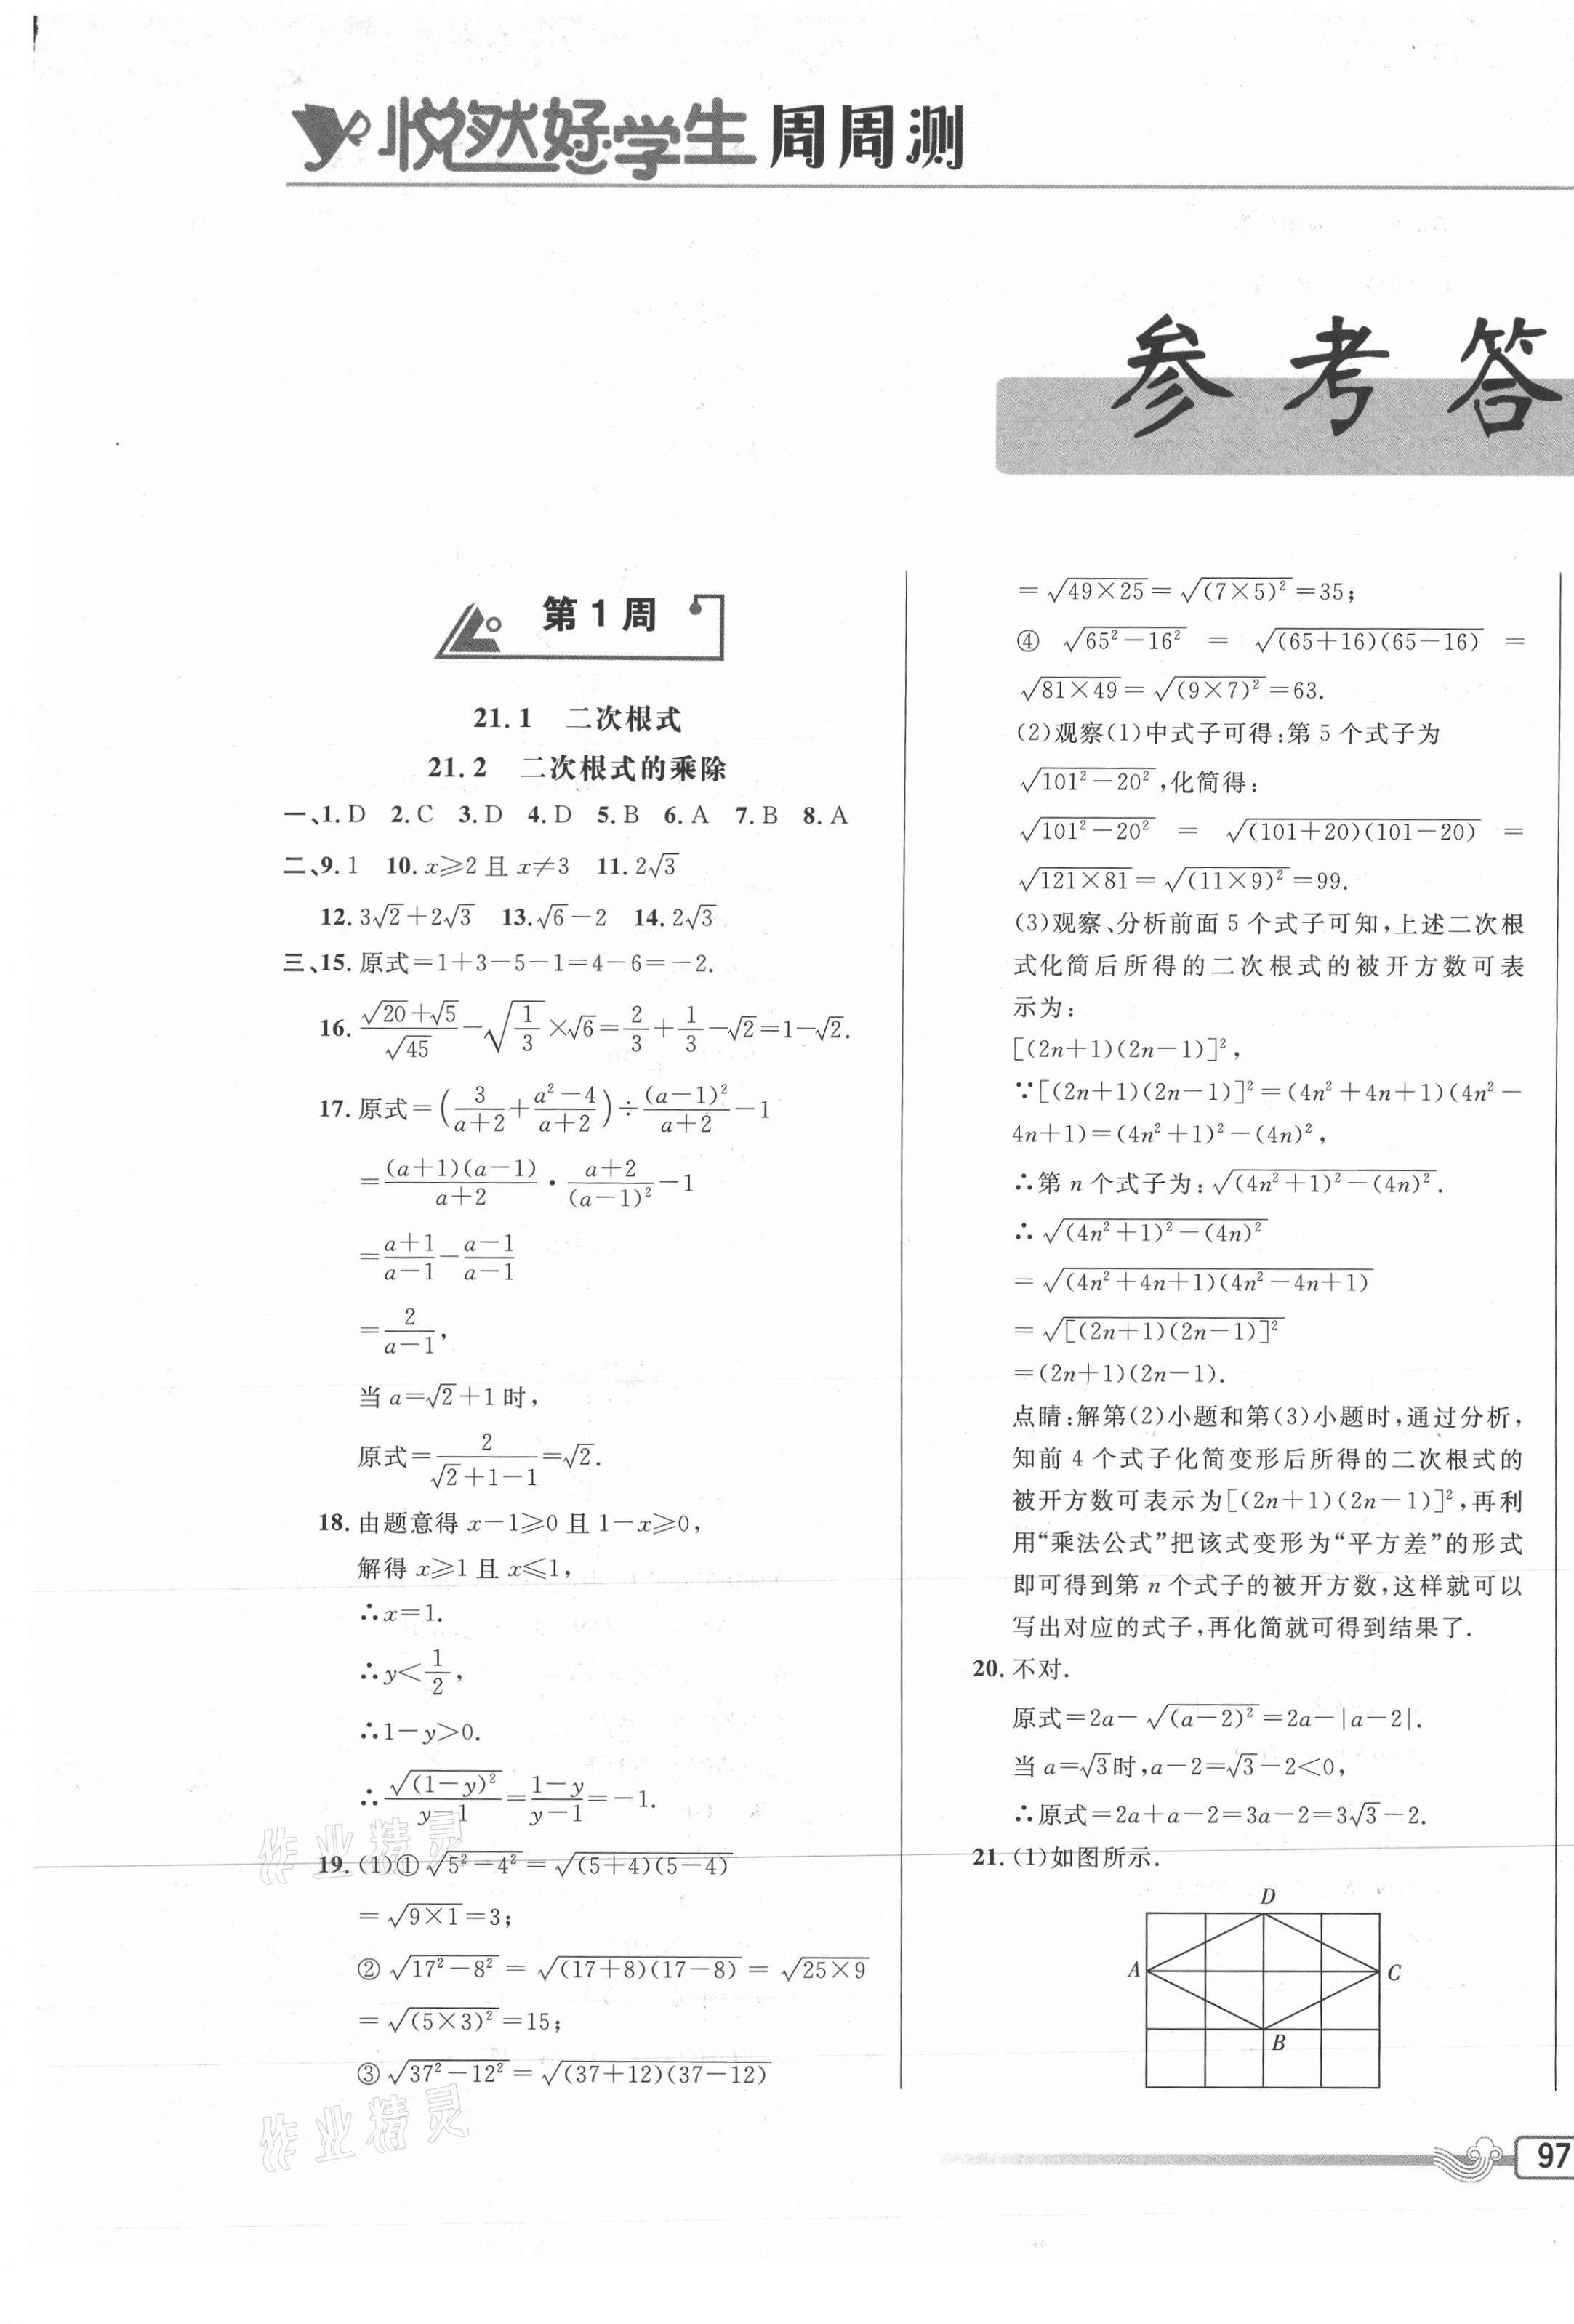 悦然好学生周周测
参考答
第1周
21.1 二次根式
21.2 二次根式的乘除
一、1.D 2.C 3.D 4.D 5.B 6.A 7.B 8.A
二、9.1 10.x≥2且x≠3 11.2√3
12.3√2+2√3 13.√6-2 14.2√3
三、15.原式=1+3-5-1=4-6=-2.
16.(√20+√5)/√45-√(1/3)×√6=2/3+1/3-√2=1-√2.
17.原式=(3/(a+2)+(a²-4)/(a+2))÷(a-1)²/(a+2)-1
=(a+1)(a-1)/(a+2)·(a+2)/(a-1)²-1
=(a+1)/(a-1)-(a-1)/(a-1)
=2/(a-1),
当a=√2+1时,
原式=2/(√2+1-1)=√2.
18.由题意得x-1≥0且1-x≥0,
解得x≥1且x≤1,
∴x=1.
∴y<1/2,
∴1-y>0.
∴√((1-y)²)/(y-1)=(1-y)/(y-1)=-1.
19.(1)①√(5²-4²)=√((5+4)(5-4))
=√(9×1)=3;
②√(17²-8²)=√((17+8)(17-8))=√(25×9)
=√((5×3)²)=15;
③√(37²-12²)=√((37+12)(37-12))
=√(49×25)=√((7×5)²)=35;
④√(65²-16²)=√((65+16)(65-16))=
√(81×49)=√((9×7)²)=63.
(2)观察(1)中式子可得:第5个式子为
√(101²-20²),化简得:
√(101²-20²)=√((101+20)(101-20))=
√(121×81)=√((11×9)²)=99.
(3)观察、分析前面5个式子可知,上述二次根
式化简后所得的二次根式的被开方数可表
示为:
[(2n+1)(2n-1)]²,
∵[(2n+1)(2n-1)]²=(4n²+4n+1)(4n²-
4n+1)=(4n²+1)²-(4n)²,
∴第n个式子为:√((4n²+1)²-(4n)²).
∴√((4n²+1)²-(4n)²)
=√((4n²+4n+1)(4n²-4n+1))
=√([(2n+1)(2n-1)]²)
=(2n+1)(2n-1).
点睛:解第(2)小题和第(3)小题时,通过分析,
知前4个式子化简变形后所得的二次根式的
被开方数可表示为[(2n+1)(2n-1)]²,再利
用“乘法公式”把该式变形为“平方差”的形式
即可得到第n个式子的被开方数,这样就可以
写出对应的式子,再化简就可得到结果了.
20.不对.
原式=2a-√((a-2)²)=2a-|a-2|.
当a=√3时,a-2=√3-2<0,
∴原式=2a+a-2=3a-2=3√3-2.
21.(1)如图所示.
D
A
C
B
97
作业精灵
作业精灵